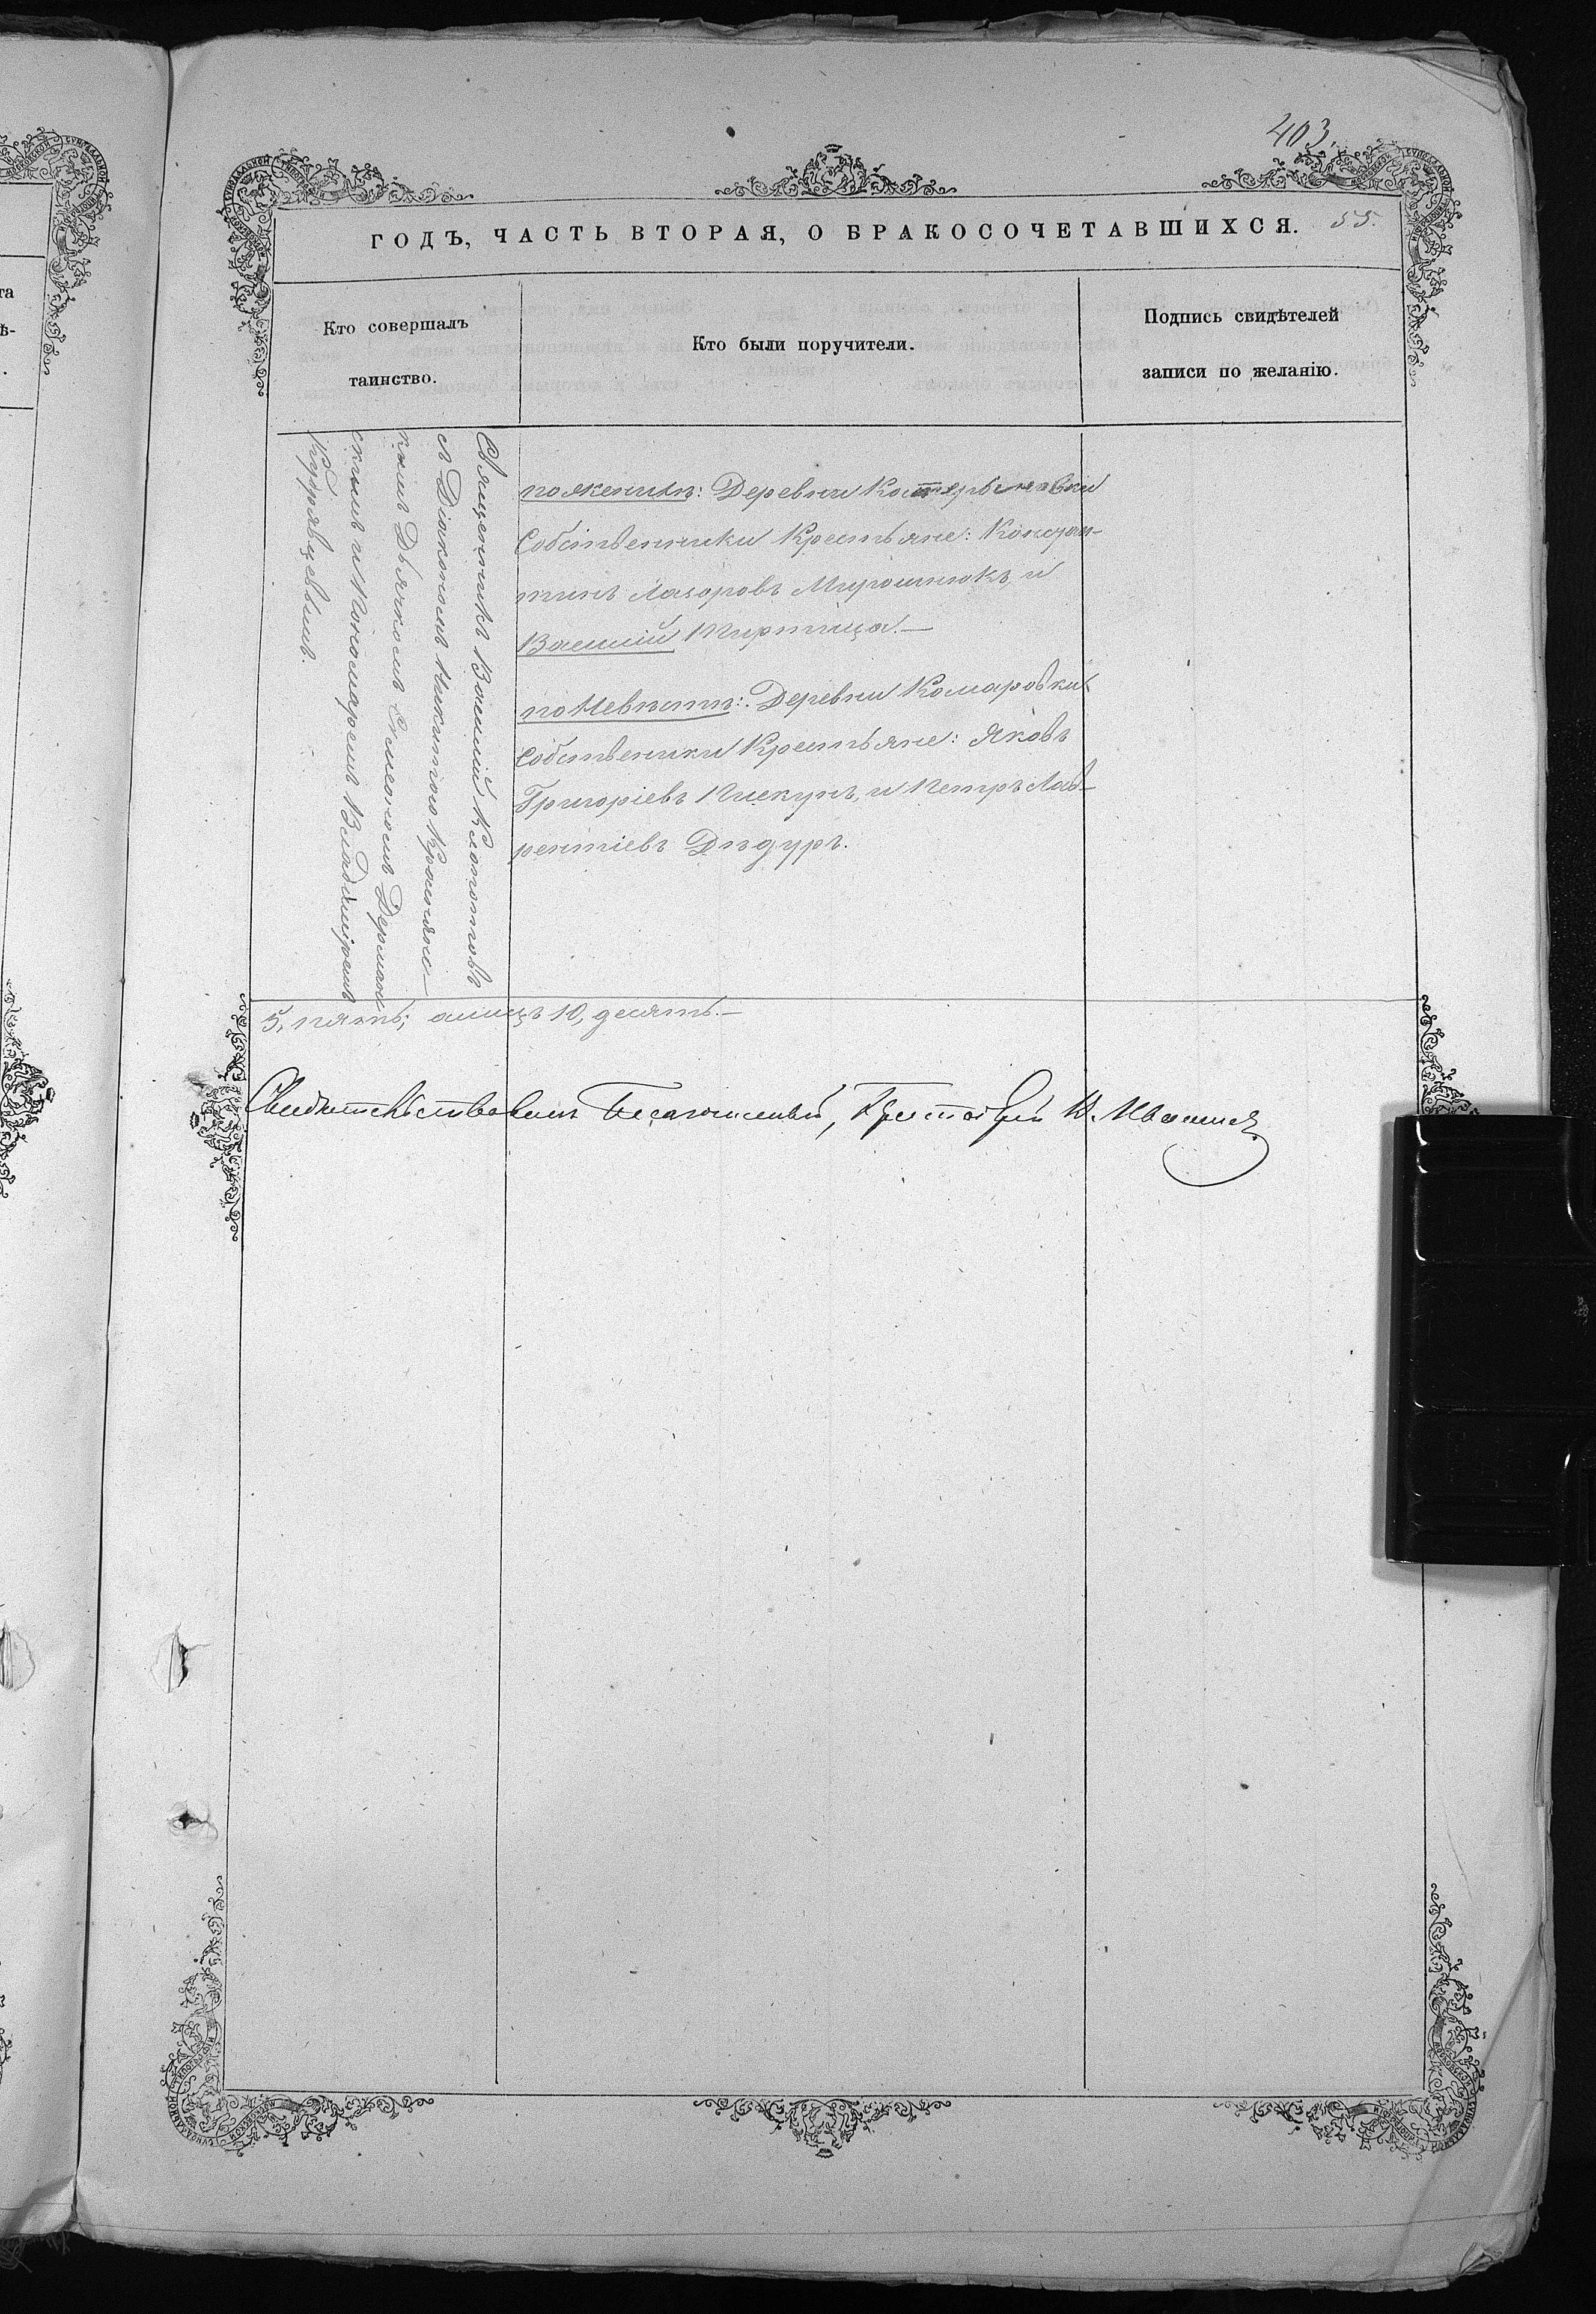 403.
55.
ГОДЪ, ЧАСТЬ ВТОРАЯ, О БРАКОСОЧЕТАВШИХСЯ.
Кто совершалъ
таинство.
Кто были поручители.
Подпись свидѣтелей
записи по желанію.
Священникъ Василій Клопотовъ
съ Діакономъ Никитою Краснян-
скимъ Дьячкомъ Симеономъ Дерман
скимъ и Пономаремъ Владиміромъ
Кудрявцевымъ.
по женихѣ: Деревни
Собственники Крестьяне: Констан-
тинъ Лазоровъ Мирошнюкъ и
Василій Тиртица.—
по Невѣстѣ: Деревни Комаровки
Собственики Крестьяне: Яковъ
Григоріевъ Пискунъ, и Петръ Лав-
рентіевъ Дѣдуръ.
5, пять; а лицъ 10, десять.—
Свидѣтельствовалъ Благочинный,